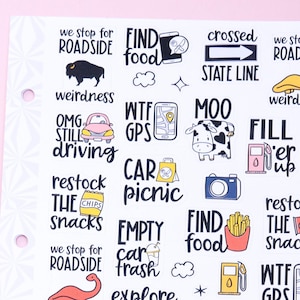 we stop for
ROADSIDE
weirdness
OMG
STILL
driving
restock
THE
CHIPS
snacks
we stop for
ROADSIDE
FIND
food
WTF
GPS
CAR
picnic
EMPTY
car
trash
explore
crossed
STATE LINE
MOO
FIND
food
we stop for
ROADSIDE
weirdness
FILL
'er
up
restock
THE
snacks
WTF
GPS